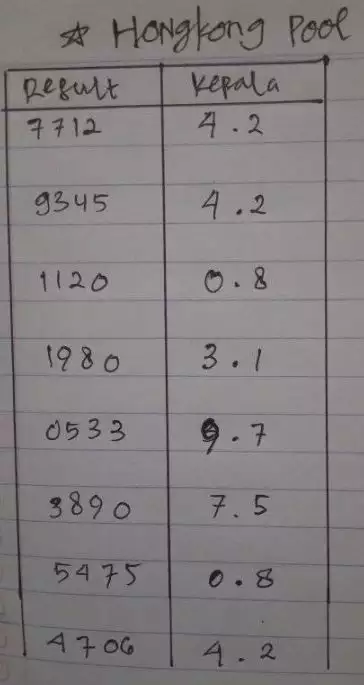 ☆ Hongkong Pool
Result Kepala
7712 4.2
9345 4.2
1120 0.8
1980 3.1
0533 9.7
3890 7.5
5475 0.8
4706 4.2